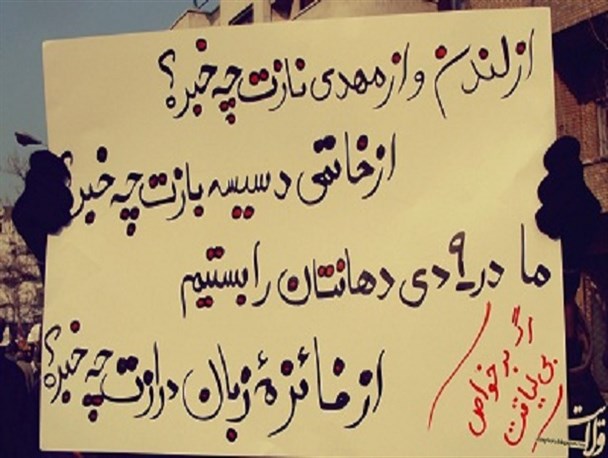 از لندن و از مهدی نازت چه خبره؟
از خاتمی دسیسه بازت چه خبره؟
ما در ۹ دی دهانتان را بستیم
از فائزهٔ زبان درازت چه خبره؟
مرگ بر خواص
بی لیاقت
ولات